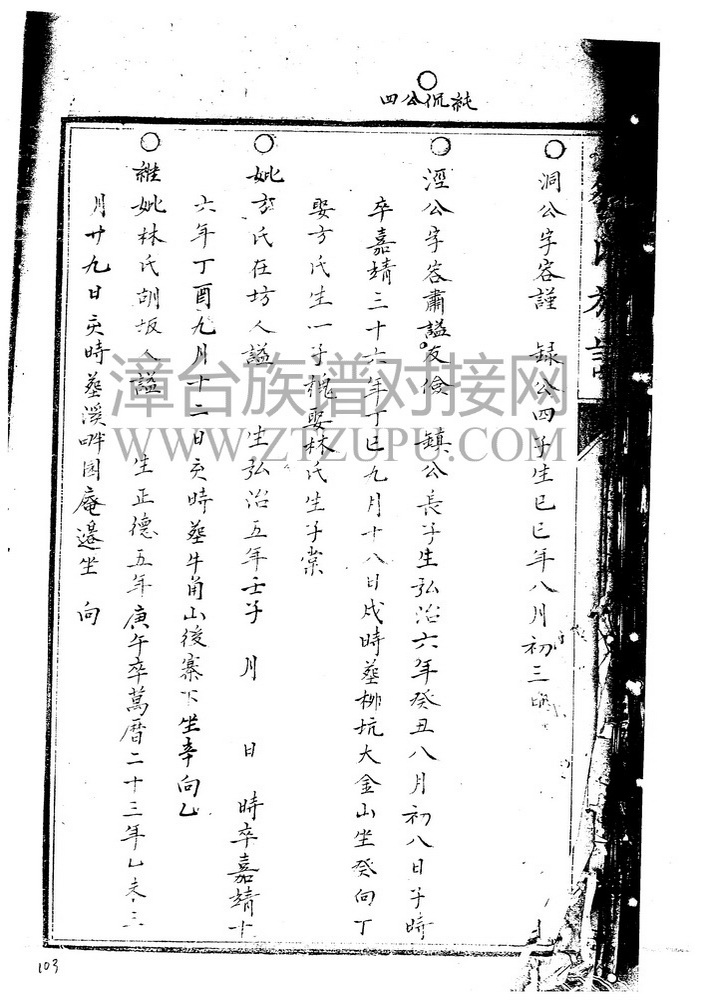 四公侃純
洞公字容謹 録公四子生己巳年八月初三
涇公字容肅謚友儉 鎮公長子生弘治六年癸丑八月初八日子時
卒嘉靖三十六年丁巳九月十八日戌時葬柳坑大金山坐癸向丁
娶方氏生一子槐娶林氏生子棠
妣方氏在坊人謚 生弘治五年壬子 月 日 時卒嘉靖十
六年丁酉九月十二日亥時葬牛角山後寨下坐辛向乙
繼妣林氏胡坂人謚 生正德五年庚午卒萬曆二十三年乙未三
月廿九日亥時葬溪畔園庵邊坐 向
氏族譜
漳台族谱对接网
WWW.ZTZUPU.COM
103